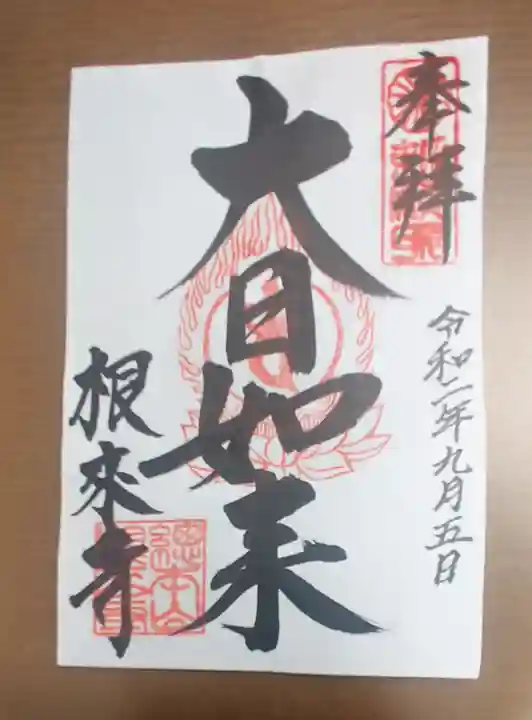 奉拝
令和二年九月五日
大日如来
根来寺